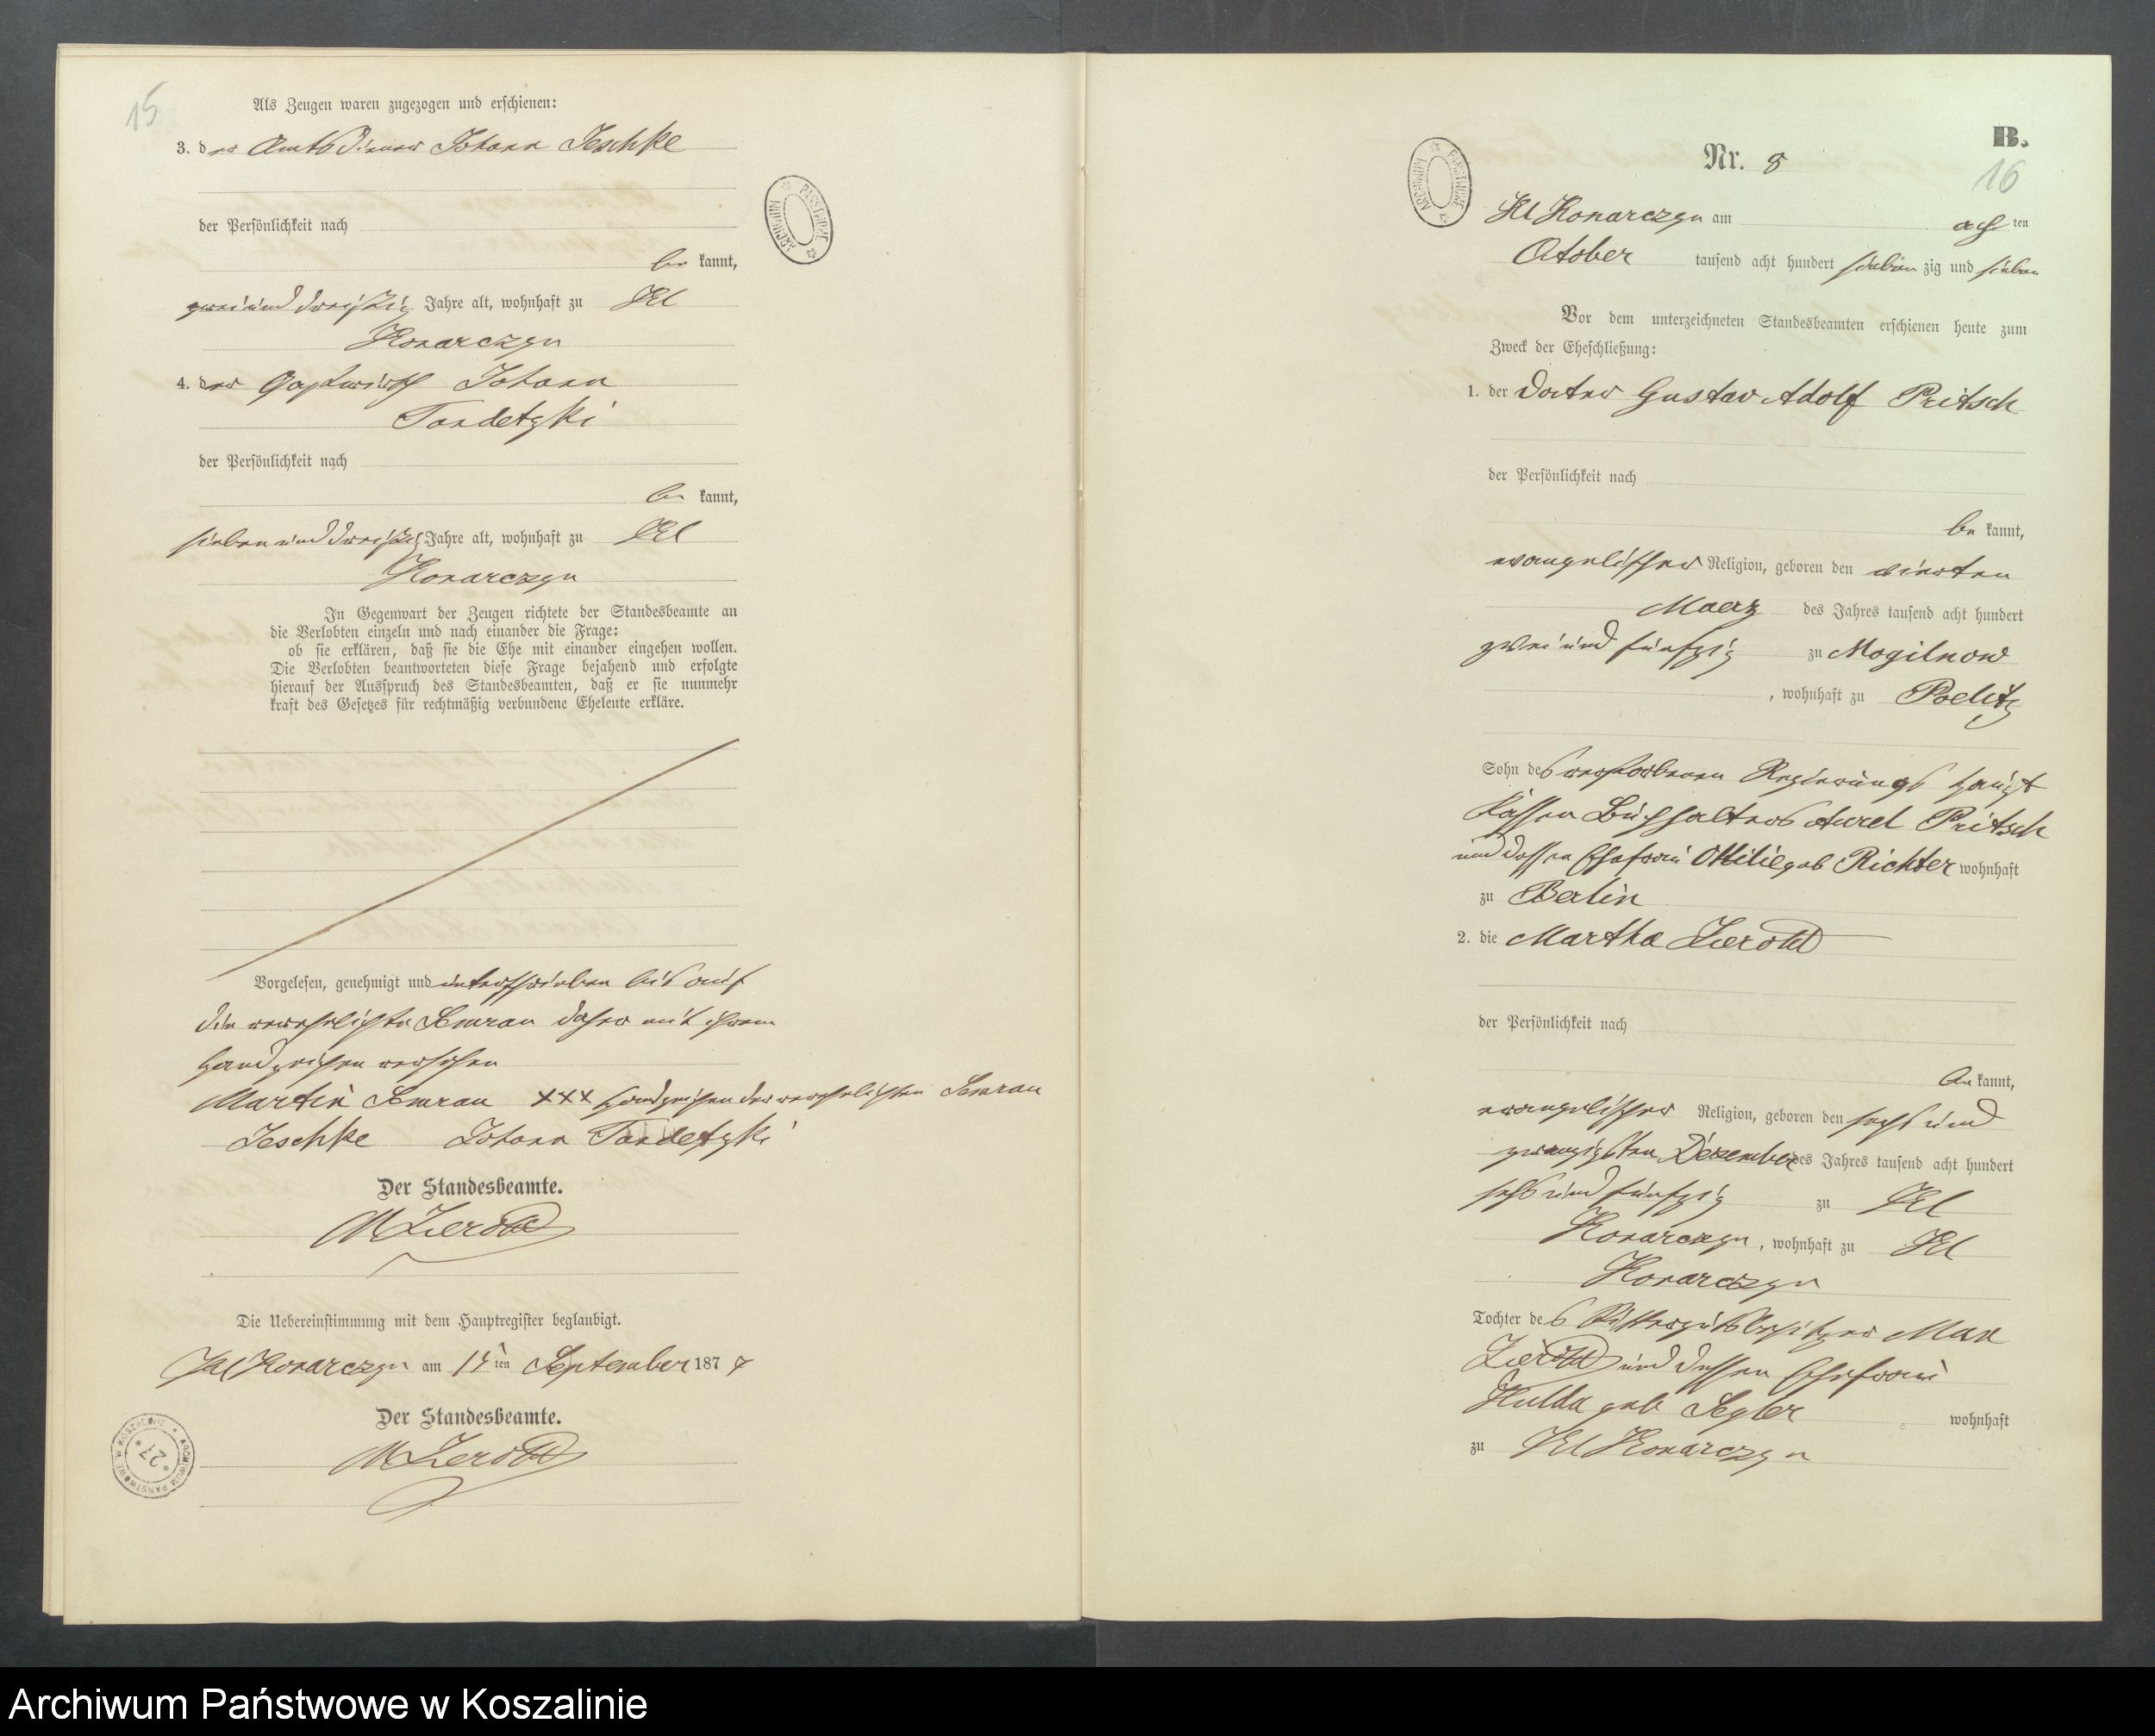 15
Als Zeugen waren zugezogen und erschienen:
3. der Amtsdiener Johann Jeschke
der Persönlichkeit nach
be kannt,
zwei und dreißig Jahre alt, wohnhaft zu Kl
Konarczyn
4. der Gastwirth Johann
Tandetzki
der Persönlichkeit nach
be kannt,
sieben und dreißig Jahre alt, wohnhaft zu Kl
Konarczyn
In Gegenwart der Zeugen richtete der Standesbeamte an
die Verlobten einzeln und nach einander die Frage:
ob sie erklären, daß sie die Ehe mit einander eingehen wollen.
Die Verlobten beantworteten diese Frage bejahend und erfolgte
hierauf der Ausspruch des Standesbeamten, daß er sie nunmehr
kraft des Gesetzes für rechtmäßig verbundene Eheleute erkläre.
Vorgelesen, genehmigt und unterschrieben bis auf
die verehelichte Semrau daher mit ihrem
Handzeichen versehen
Martin Semrau xxx Handzeichen der verehelichten Semrau
Jeschke Johann Tandetzki
Der Standesbeamte.
M Zierold
Die Uebereinstimmung mit dem Hauptregister beglaubigt.
Kl Konarczyn am ten September 187 7
Der Standesbeamte.
M Zierold
ARCHIWUM PAŃSTWOWE
ARCHIWUM PAŃSTWOWE W KOSZALINIE
* 27 *
B.
Nr. 8
16
ARCHIWUM PAŃSTWOWE
Kl Konarczyn am acht ten
October tausend acht hundert sieben zig und sieben
Vor dem unterzeichneten Standesbeamten erschienen heute zum
Zweck der Eheschließung:
1. der Gustav Adolf Pritsch
der Persönlichkeit nach
be kannt,
evangelischer Religion, geboren den vierten
Maerz des Jahres tausend acht hundert
zwei und fünfzig zu Mogilnow
, wohnhaft zu Poelitz
Sohn des verstorbenen Regierungs Haupt
Kassen Buchhalters Aurel Pritsch
und dessen Ehefrau Ottilie geb Richter wohnhaft
zu Berlin
2. die Martha Zierold
der Persönlichkeit nach
be kannt,
evangelischer Religion, geboren den sechs und
zwanzigsten Dezember des Jahres tausend acht hundert
sechs und fünfzig zu Kl
Konarczyn, wohnhaft zu Kl
Konarczyn
Tochter des Rittergutsbesitzer Max
Zierold und dessen Ehefrau
Hulda geb Segler wohnhaft
zu Kl Konarczyn
Archiwum Państwowe w Koszalinie